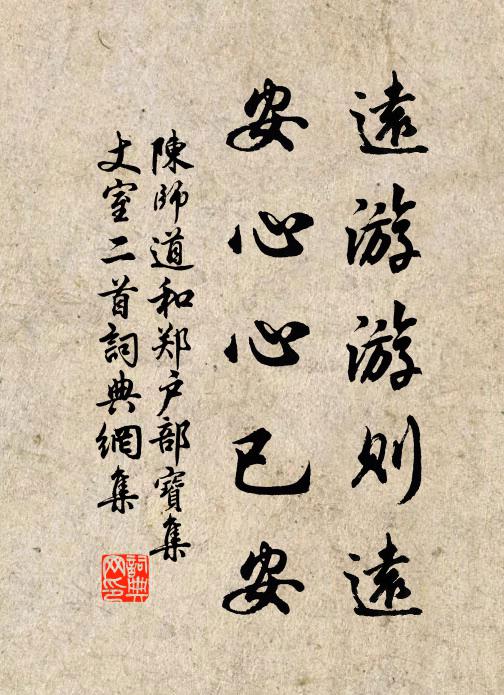 遠游游則遠
安心心已安
陳師道和郑户部寶集
丈室二首詞典網集
詞典網印